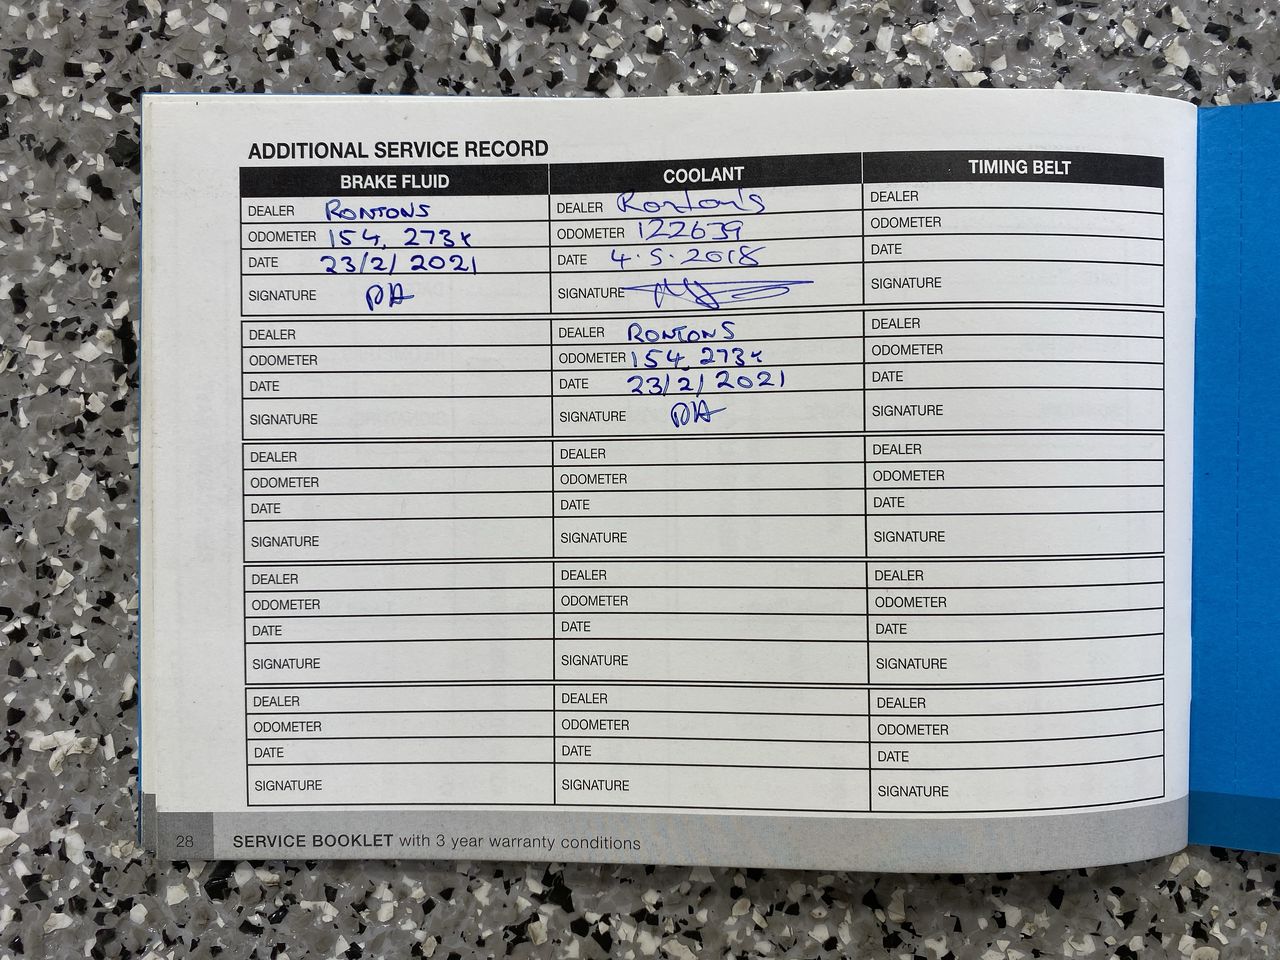 ADDITIONAL SERVICE RECORD
BRAKE FLUID COOLANT TIMING BELT
DEALER RONTONS DEALER Ronton's DEALER
ODOMETER 154,273K ODOMETER 122639 ODOMETER
DATE 23/2/2021 DATE 4.5.2018 DATE
SIGNATURE SIGNATURE SIGNATURE
DEALER DEALER RONTONS DEALER
ODOMETER ODOMETER 154,273K ODOMETER
DATE DATE 23/2/2021 DATE
SIGNATURE SIGNATURE SIGNATURE
DEALER DEALER DEALER
ODOMETER ODOMETER ODOMETER
DATE DATE DATE
SIGNATURE SIGNATURE SIGNATURE
DEALER DEALER DEALER
ODOMETER ODOMETER ODOMETER
DATE DATE DATE
SIGNATURE SIGNATURE SIGNATURE
DEALER DEALER DEALER
ODOMETER ODOMETER ODOMETER
DATE DATE DATE
SIGNATURE SIGNATURE SIGNATURE
28 SERVICE BOOKLET with 3 year warranty conditions